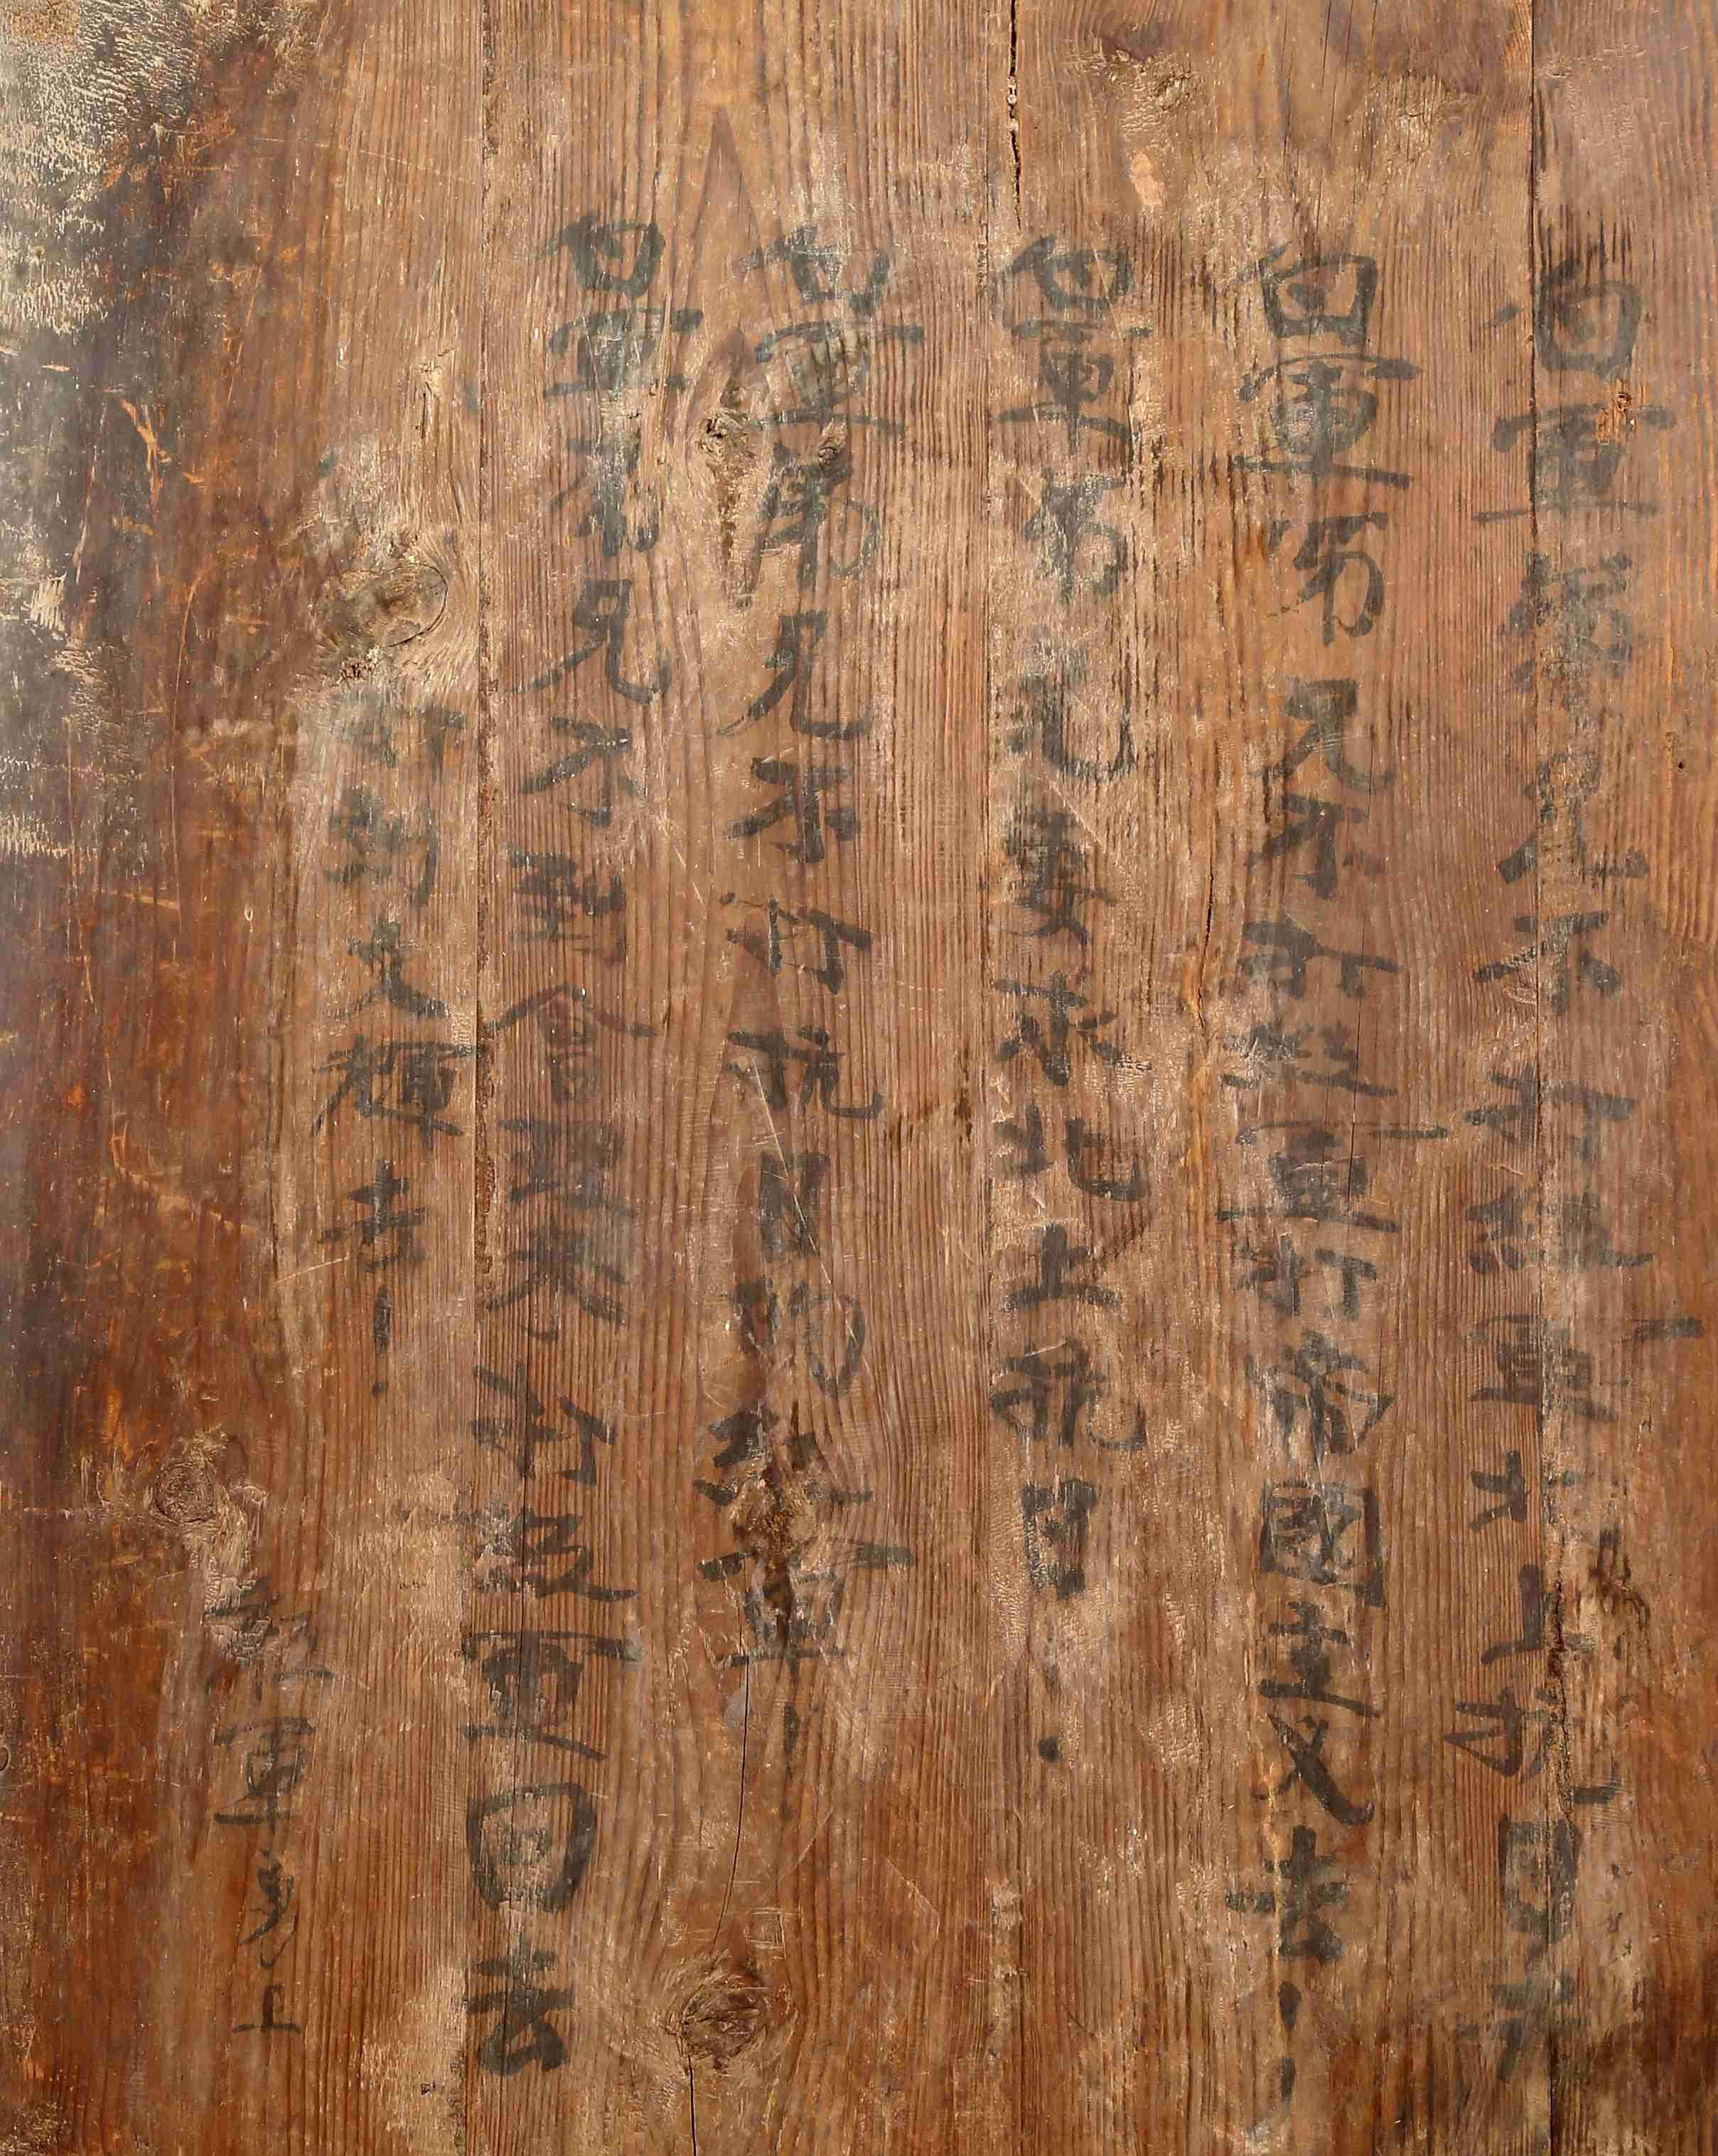 白軍弟兄不打紅軍北上抗日去
白軍弟兄不打紅軍打帝國主义去!
白軍弟兄要求北上抗日.
白軍弟兄不打抗日的紅軍!
白軍弟兄不到會理來打紅軍回去
打劉文輝去!
紅軍 上